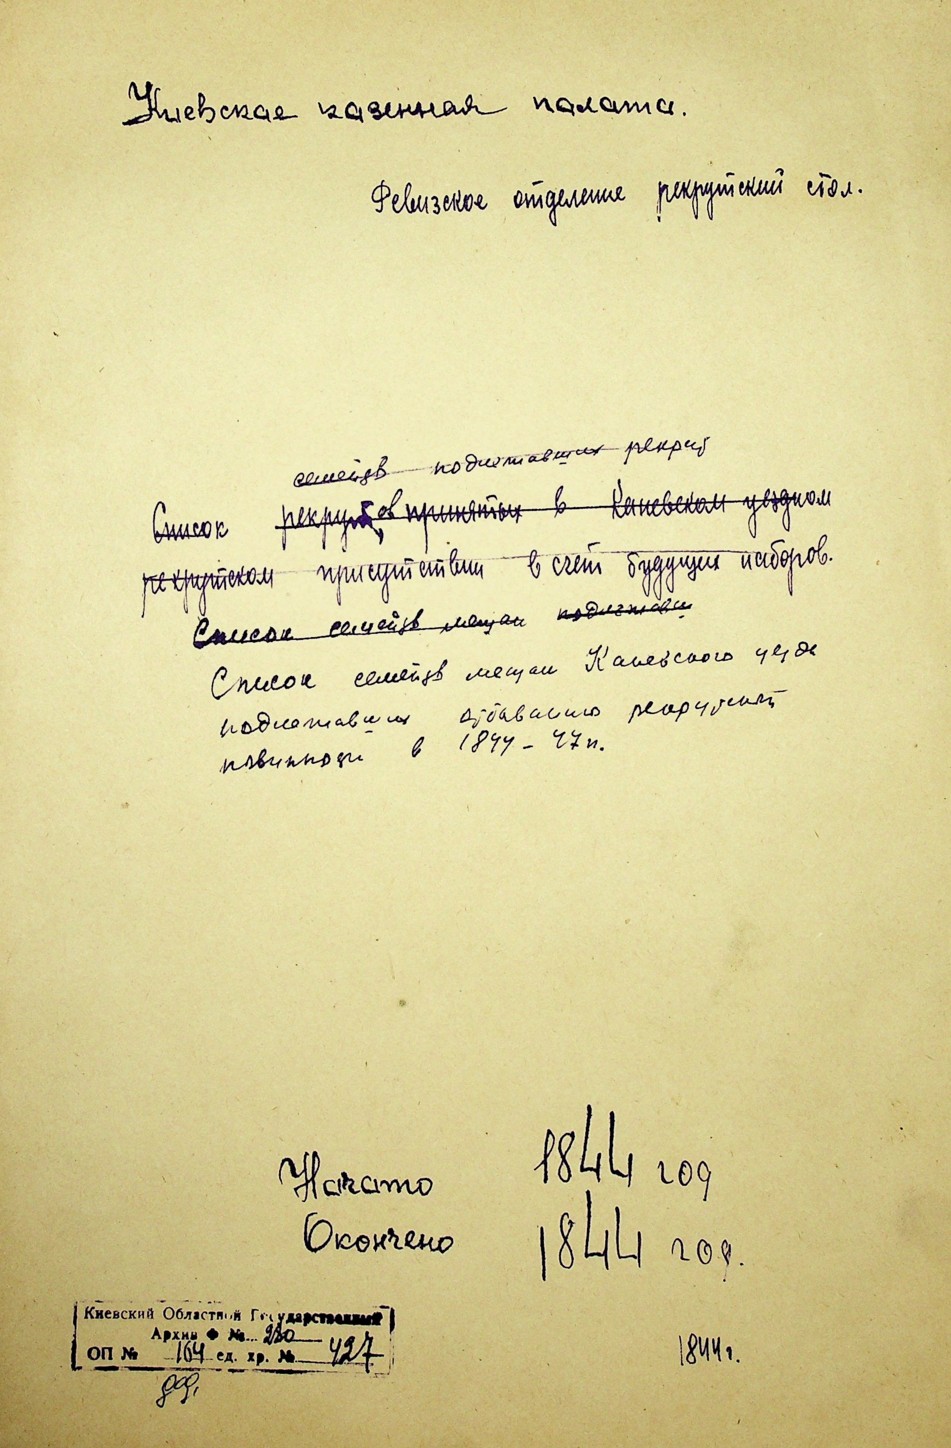 Киевская казенная палата.
Ревизское отделение рекрутский стол.
семейств подлежавших рекрут
Список рекрутов принятых в Каневском уездном
рекрутском присутствии в счет будущих наборов.
Список семейств мещан подлежавш
Список семейств мещан Каневского уезда
подлежавших отбыванию рекрутской
повинности в 1844-47 г.
Начато 1844 год
Окончено 1844 год.
Киевский Областной Государственный
Архив Ф № 280
ОП № 164 ед. хр. № 427
1844 г.